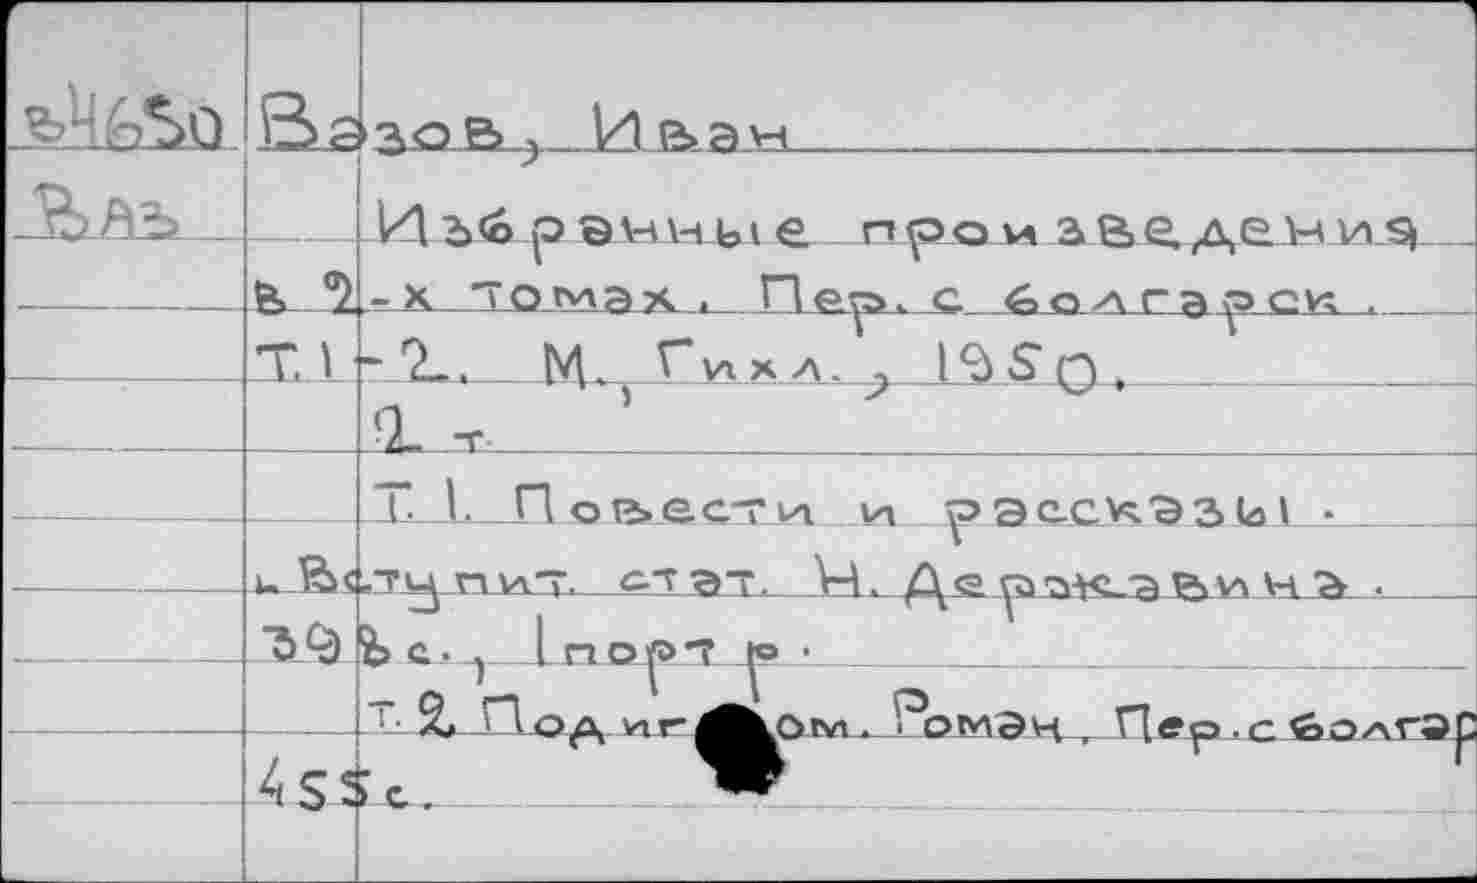 в4650 Вазов, Иван
Ваз Избранные произведения
в 2-х томах. Пер. с болгарск.
Т. 1-2. М., Гихл., 1950.
2 т.
Т. 1. Повести и рассказы.
и Вступит. стат. Н. Державина.
39 с., 1 портр.
т. 2, Под игом. Роман, Пер. с болгар
455 с.